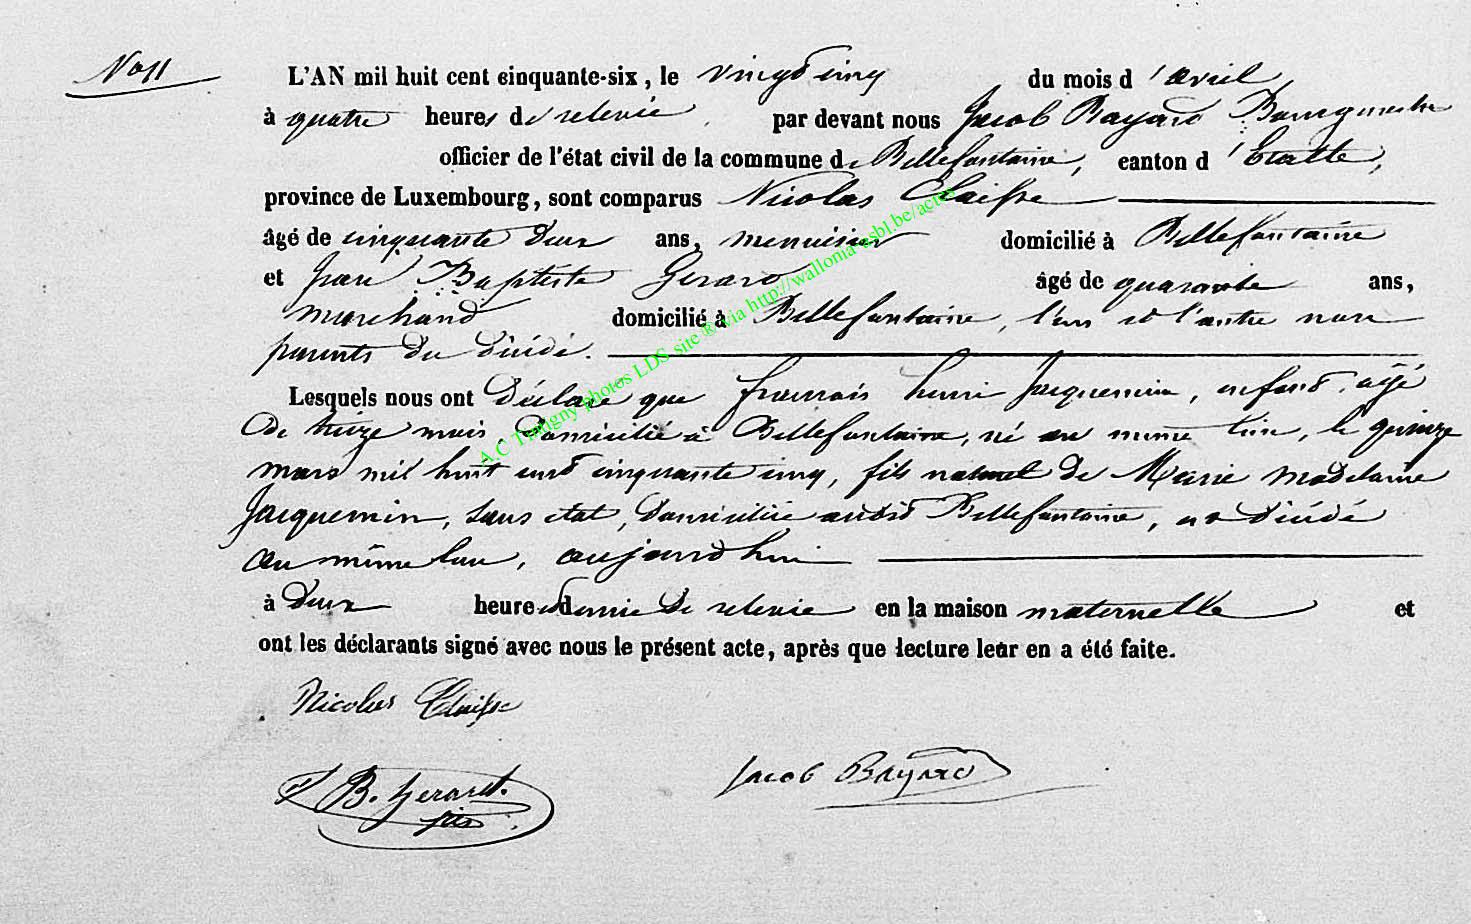 No 11
L'AN mil huit cent cinquante-six, le vingt cinq du mois d'avril
à quatre heures de relevée par devant nous Jacob Bayard Bourgmestre
officier de l'état civil de la commune de Bellefontaine, canton d'Etalle,
province de Luxembourg, sont comparus Nicolas Claisse
âgé de cinquante deux ans, menuisier domicilié à Bellefontaine
et Jean Baptiste Gerard âgé de quarante ans,
marchand domicilié à Bellefontaine, l'un et l'autre non
parents du décédé.
Lesquels nous ont déclaré que francois henri Jacquemin, enfant, agé
de treize mois, domicilié à Bellefontaine, né au même lieu, le quinze
mars mil huit cent cinquante cinq, fils naturel de Marie Madelaine
Jacquemin, sans état, domiciliée audit Bellefontaine, est décédé
au même lieu, aujourd'hui
à deux heures et demie de relevée en la maison maternelle et
ont les déclarants signé avec nous le présent acte, après que lecture leur en a été faite.
Nicolas Claisse
J B. Gerard. fils
Jacob Bayard
A.C Tintigny photos LDS site ® via http://wallonia-asbl.be/actes